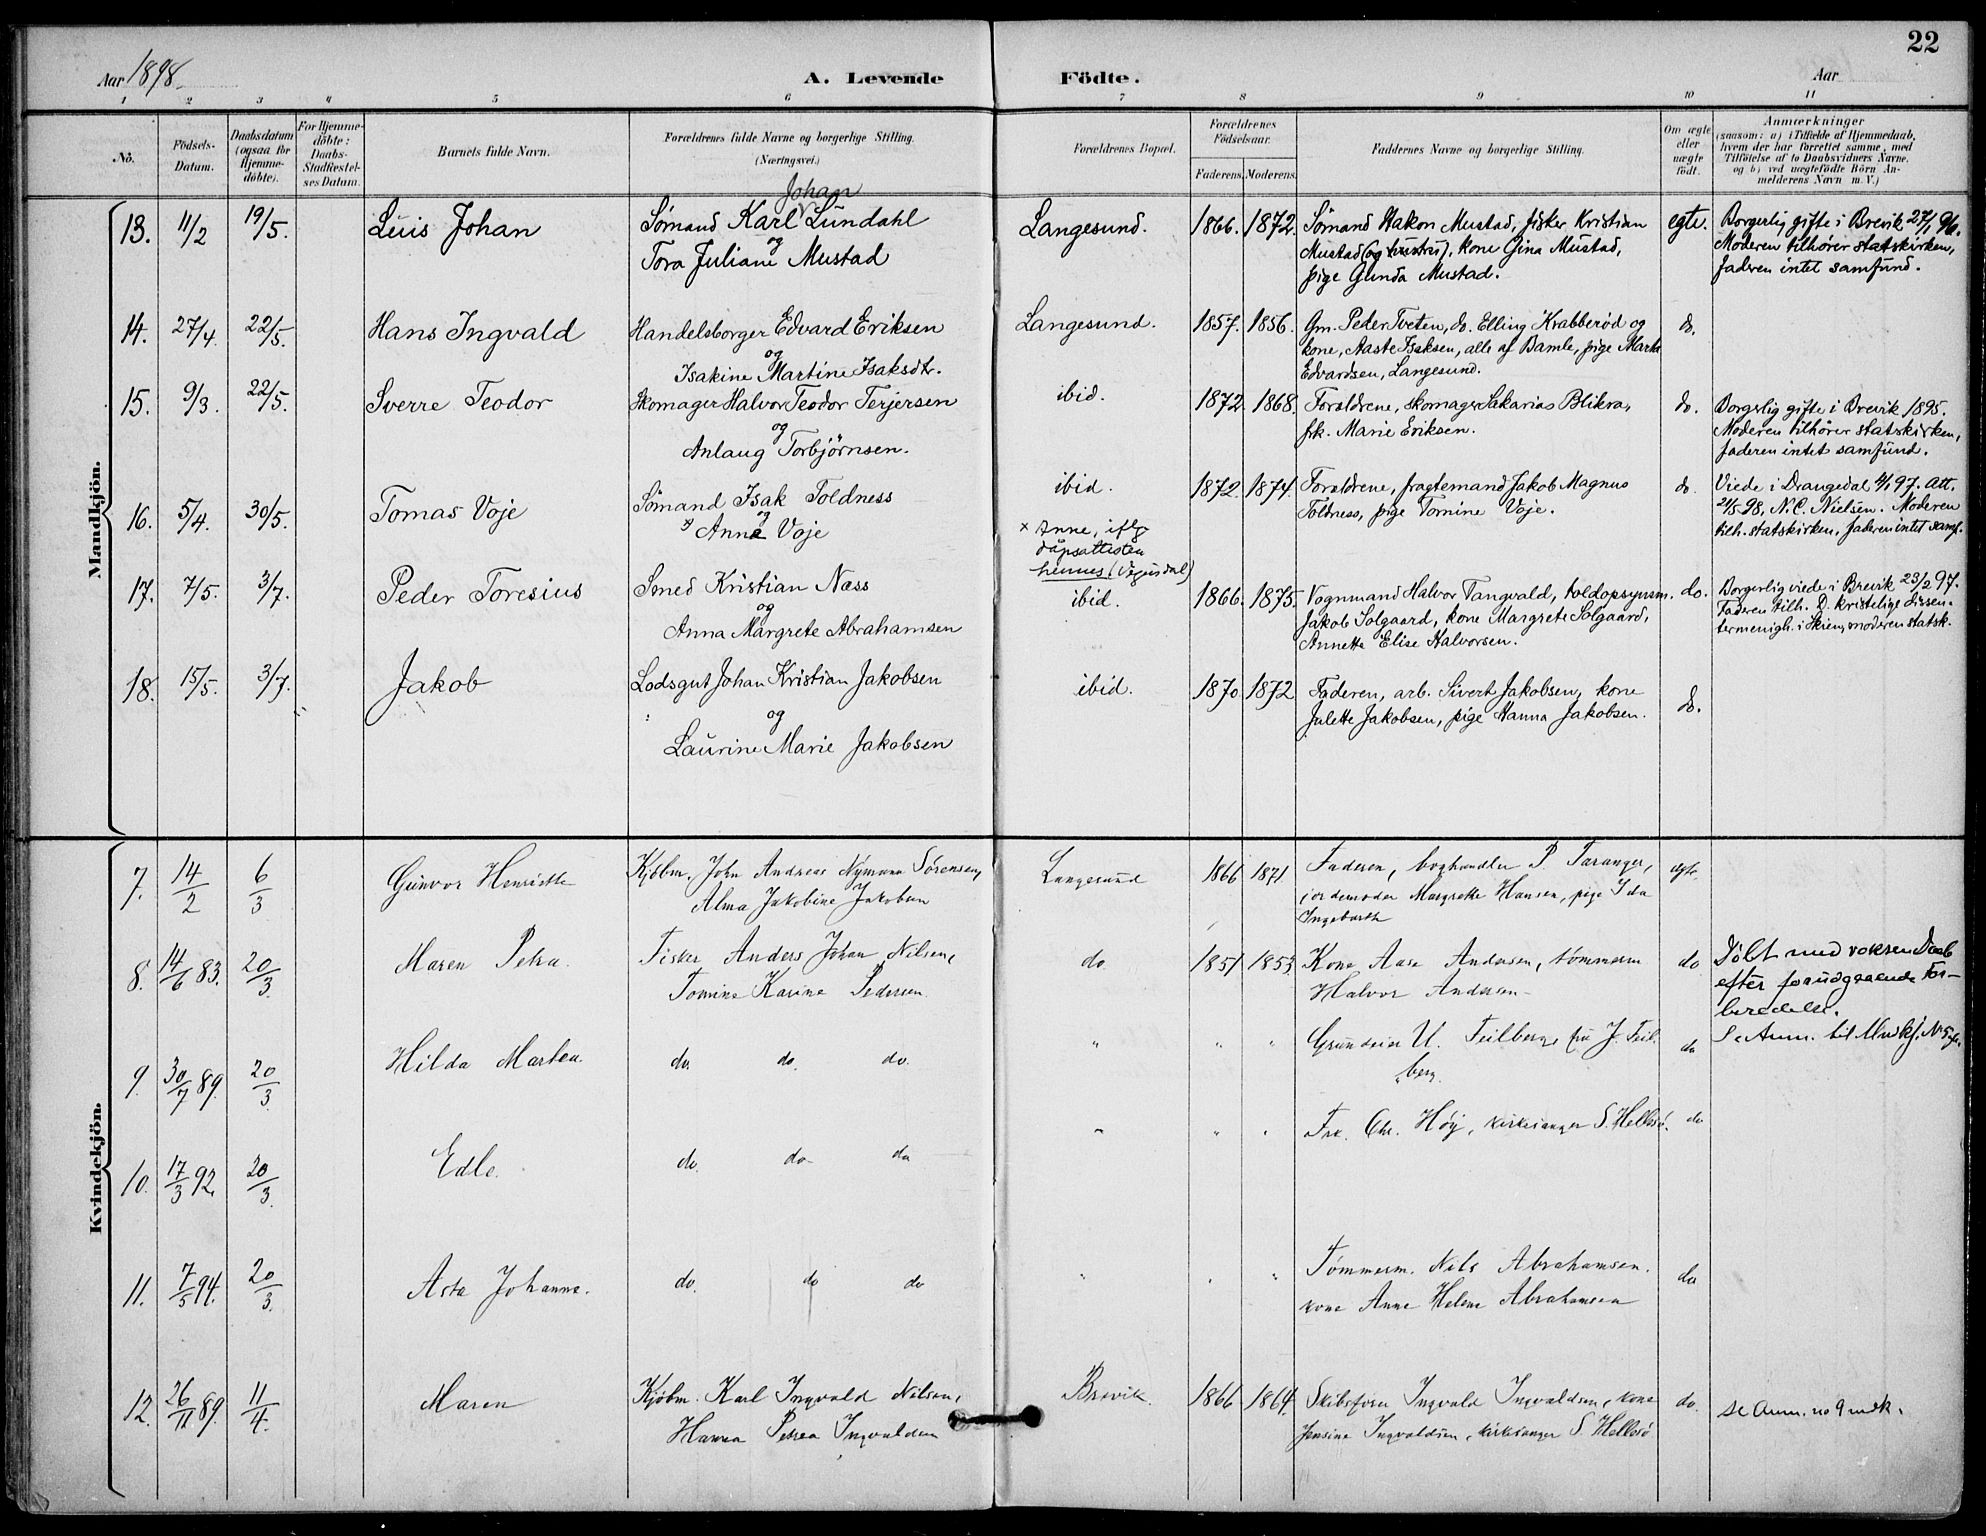 22
Aar 1898.
A. Levende Födte.
Aar
1 2 3 4 5 6 7 8 9 10 11
No.
Födsels-Datum.
Daabsdatum (ogsaa for Hjemme-döbte).
For Hjemme-döbte: Daabs-Stadfæstel-ses Datum.
Barnets fulde Navn.
Forældrenes fulde Navne og borgerlige Stilling. (Næringsvei.)
Forældrenes Bopæl.
Forældrenes Födselsaar.
Faderens. Moderens.
Faddernes Navne og borgerlige Stilling.
Om ægte eller uægte födt.
Anmærkninger
(saasom: a) i Tilfælde af Hjemmedaab,
hvem der har forrettet samme, med
Tilföielse af to Daabsvidners Navne.
og b) ved uægtefödte Börn An-
melderens Navn m. V.)
Mandkjön.
13. 11/2 19/5. Luis Johan
Johan
Sømand Karl Lundahl
og
Tora Juliane Mustad
Langesund. 1866. 1872.
Sømand Hakon Mustad, fisker Kristian
Mustad (og hustru), kone Gina Mustad,
pige Glinda Mustad.
egte.
Borgerlig gifte i Brevik 27/1 96.
Moderen tilhører statskirken,
faderen intet samfund.
14. 27/4. 22/5. Hans Ingvald
Handelsborger Edvard Eriksen
og
Isakine Martine Isaksdtr.
Langesund. 1857. 1856.
Gm. Peder Tveten, do. Elling Krabberød og
kone, Aaste Isaksen, alle af Bamle, pige Marta
Edvardsen, Langesund.
do.
15. 9/3. 22/5. Sverre Teodor
Skomager Halvor Teodor Terjersen
og
Anlaug Torbjørnsen.
ibid. 1872 1868.
Forældrene, skomager Sakarias Blikra,
frk. Marie Eriksen.
do.
Borgerlig gifte i Brevik 1895.
Moderen tilhører statskirken,
faderen intet samfund.
16. 5/4. 30/5. Tomas Voje
Sømand Isak Toldness
og
x Anne Voje
ibid. 1872. 1874.
x Anne, iflg
dåpsattesten
hennes (Vegusdal)
Forældrene, fragtemand Jakob Magnus
Toldness, pige Tomine Voje.
do.
Viede i Drangedal 4/1 97. Att.
21/5 98, N.C. Nielsen. Moderen
tilh. statskirken, faderen intet samf.
17. 7/5. 3/7. Peder Toresius
Smed Kristian Næss
og
Anna Margrete Abrahamsen
ibid. 1866. 1875.
Vognmand Halvor Tangvald, toldopsynsm.
Jakob Solgaard, kone Margrete Solgaard,
Annette Elise Halvorsen.
do.
Borgerlig viede i Brevik 23/2 97.
Faderen tilh. D. kristelige dissen-
termenigh. i Skien, moderen statsk.
18. 15/5. 3/7. Jakob
Lodsgut Johan Kristian Jakobsen
og
Laurine Marie Jakobsen
ibid. 1870 1872
Faderen, arb. Sivert Jakobsen, kone
Julette Jakobsen, pige Hanna Jakobsen.
do.
Kvindekjön.
7. 14/2 6/3 Gunvor Henriette
Kjøbm. John Andreas Nymann Sørensen,
Alma Jakobine Jakobsen
Langesund 1866 1871.
Faderen, boghandler P. Taranger,
jordemoder Margrethe Hansen, pige Ida
Ingebreth
egte.
8. 14/6 83. 20/3 Maren Petra.
Fisker Anders Johan Nilsen,
Tomine Karine Pedersen.
do. 1851 1853
Kone Aase Andersen, tømmerm
Halvor Andersen
do
Døbt med voksen Daab
efter forudgaaende For-
beredelse.
9. 30/7 89. 20/3 Hilda Marten.
do. do. do.
" " "
Grundeier U. Teilberg, fru J. Teil-
berg.
do
Se Anm. til Mndkj. No 5
10. 17/3 92. 20/3. Edle.
do. do do
" " "
Frk. Chr. Høy, kirkesanger S. Hellesø.
do
11. 7/5 94. 20/3. Asta Johanne.
do. do do
" " "
Tømmerm. Nils Abrahamsen.
kone Anne Helene Abrahamsen
do
12. 26/11 89. 11/4. Maren
Kjøbm. Karl Ingvald Nilsen,
Hanna Petrea Ingvaldsen
Brevik. 1866 1864.
Skibsfører Ingvald Ingvaldsen, kone
Jensine Ingvaldsen, kirkesanger S. Hellesø
do.
se Anm. no 9 mdk.